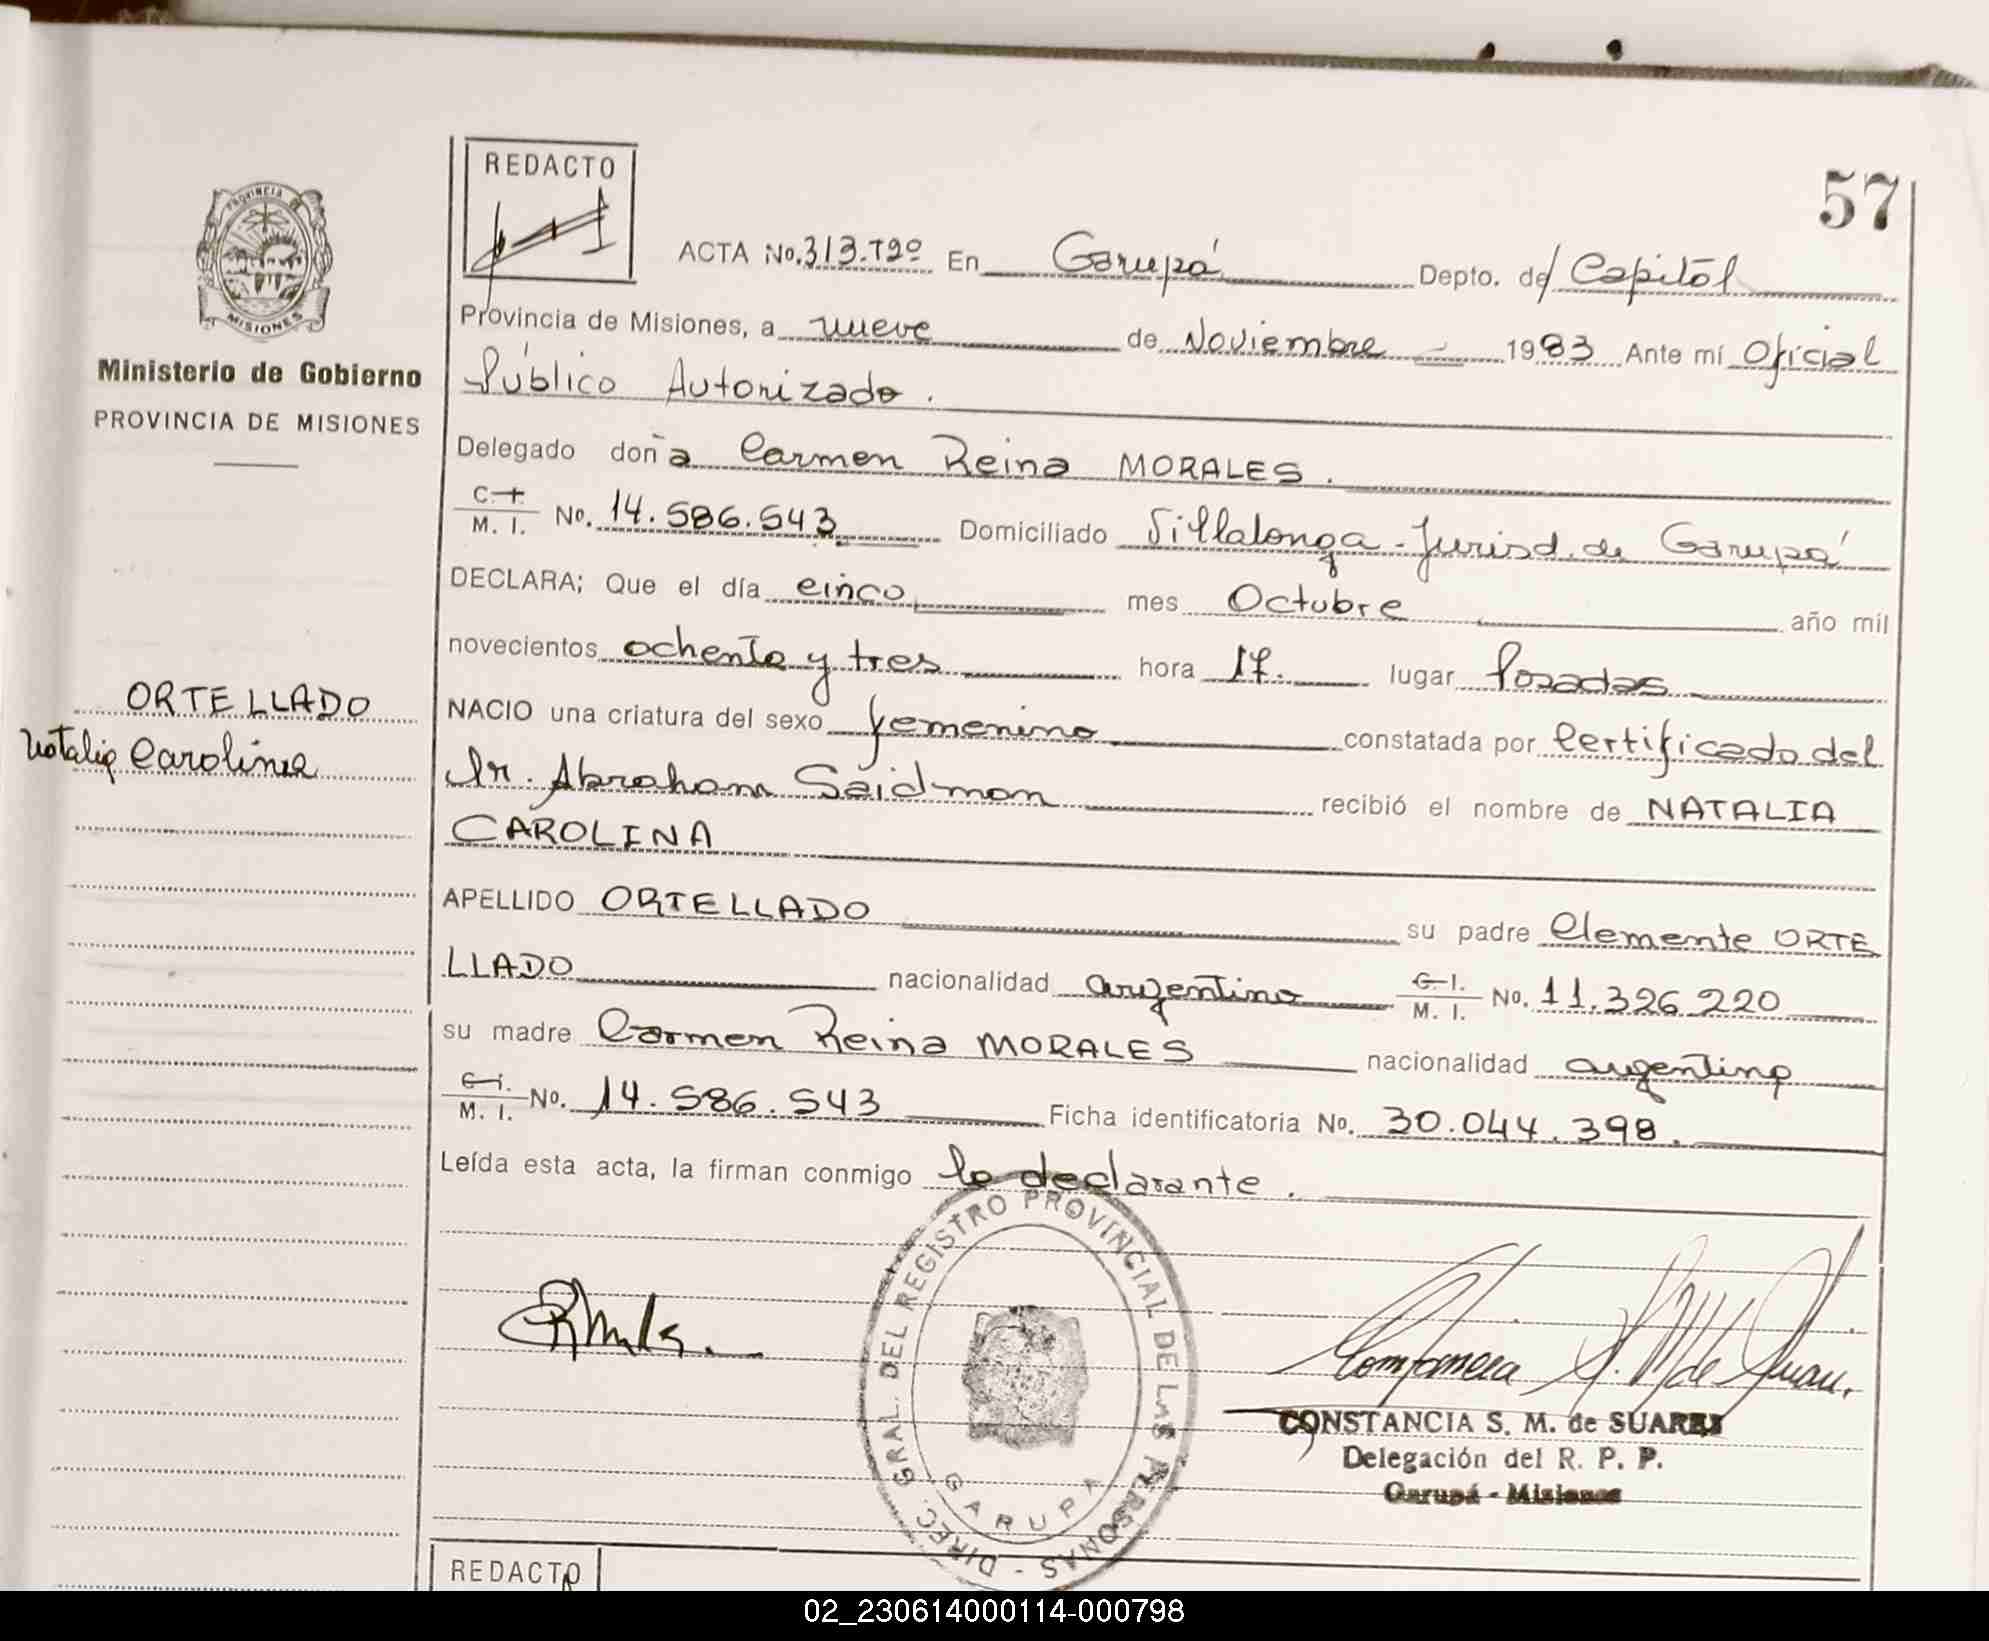 57
REDACTO
ACTA No. 313.Tº2º En Garupá Depto. de Capital
PROVINCIA
MISIONES
Provincia de Misiones, a nueve de Noviembre 1983 Ante mí Oficial
Ministerio de Gobierno
PROVINCIA DE MISIONES
Público Autorizado.
Delegado doña Carmen Reina MORALES.
C. I.
M. I. No. 14.586.543 Domiciliado Villalonga - Jurisd. de Garupá
DECLARA; Que el día cinco mes Octubre año mil
novecientos ochenta y tres hora 17. lugar Posadas
ORTELLADO
Natalia Carolina
NACIO una criatura del sexo femenino constatada por Certificado del
Dr. Abraham Saidman recibió el nombre de NATALIA
CAROLINA
APELLIDO ORTELLADO su padre Clemente ORTE
LLADO nacionalidad argentino C. I.
M. I. No. 11.326.220
su madre Carmen Reina MORALES nacionalidad argentina
C. I.
M. I. No. 14.586.543 Ficha identificatoria No. 30.044.398.
Leída esta acta, la firman conmigo la declarante.
DIREC. GRAL. DEL REGISTRO PROVINCIAL DE LAS PERSONAS -
GARUPA
Constancia S. M. de Suarez
CONSTANCIA S. M. de SUAREZ
Delegación del R. P. P.
Garupá - Misiones
REDACTO
02_230614000114-000798